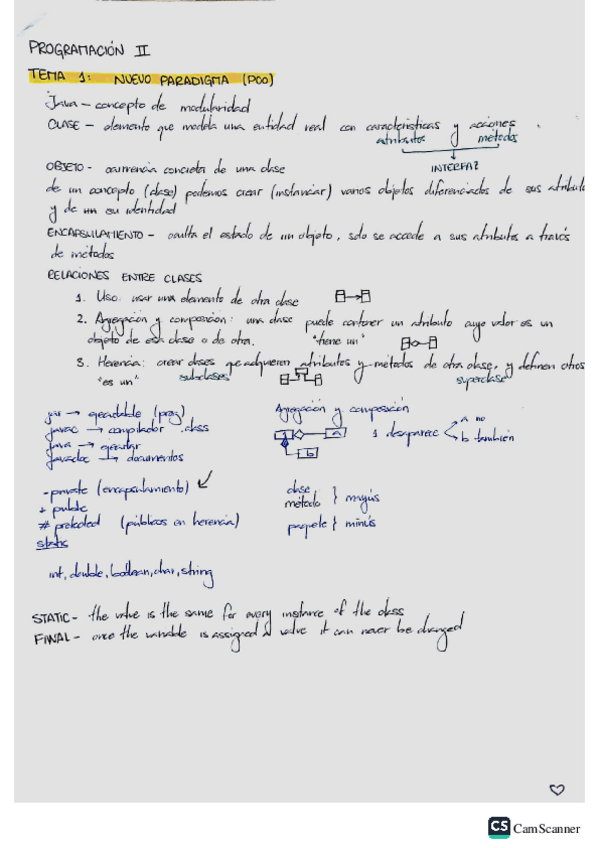 PROGRAMACIÓN II
TEMA 1: NUEVO PARADIGMA (POO)
Java – concepto de modularidad
CLASE – elemento que modela una entidad real con características y acciones
atributos métodos
INTERFAZ
OBJETO - ocurrencia concreta de una clase
de un concepto (clase) podemos crear (instanciar) varios objetos diferenciados de sus atributo
y de un su identidad
ENCAPSULAMIENTO – oculta el estado de un objeto, solo se accede a sus atributos a través
de métodos
RELACIONES ENTRE CLASES
1. Uso: usar una elemento de otra clase
2. Agregación y composición: una clase puede contener un atributo cuyo valor es un
objeto de esa clase o de otra. "tiene un"
3. Herencia: crear clases que adquieren atributos y métodos de otra clase, y definen otros
"es un" subclases superclase
jar → ejecutable (prog)
javac → compilador .class
java → ejecutar
javadoc → documentos
Agregación y composición
1 a
b
1 desaparece a no
b también
- private (encapsulamiento) ✓
+ public
# protected (públicos en herencia)
static
clase
método } mayús
paquete } minús
int, double, boolean, char, string
STATIC – the value is the same for every instance of the class
FINAL – once the variable is assigned a value it can never be changed
♡
CS CamScanner